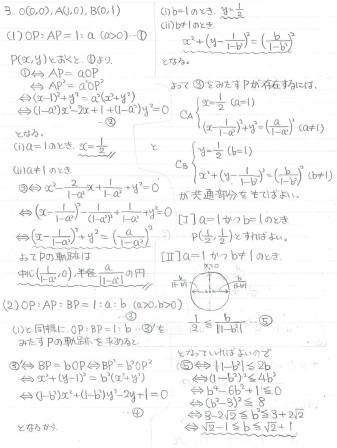 3. O(0,0), A(1,0), B(0,1)
(1) OP:AP = 1:a (a>0) …①
P(x,y)とおくと、①より、
①⇔ AP = aOP
⇔ AP² = a²OP²
⇔ (x-1)²+y² = a²(x²+y²)
⇔ (1-a²)x²-2x+1+(1-a²)y²=0
…②
となる。
(i) a=1のとき、x=1/2 と
(ii) a≠1のとき
②⇔ x² - 2/(1-a²) x + 1/(1-a²) + y² = 0
⇔ (x - 1/(1-a²))² - 1/(1-a²)² + 1/(1-a²) + y² = 0
⇔ (x - 1/(1-a²))² + y² = (a/(1-a²))²
よってPの軌跡は
中心(1/(1-a²), 0), 半径 a/|1-a²| の円
(2) OP:AP:BP = 1:a:b (a>0,b>0)
…③
(i)と同様に、OP:BP = 1:b …③'を
みたすPの軌跡を求めると
③'⇔ BP = bOP ⇔ BP² = b²OP²
⇔ x²+(y-1)² = b²(x²+y²)
⇔ (1-b²)x²+(1-b²)y²-2y+1=0
…④
となるから、
(i) b=1のとき、y=1/2
(ii) b≠1のとき
x²+(y - 1/(1-b²))² = (b/(1-b²))²
となる。
よって③をみたすPが存在するには、
C_A { x=1/2 (a=1)
(x - 1/(1-a²))²+y² = (a/(1-a²))² (a≠1)
と
C_B { y=1/2 (b=1)
x²+(y - 1/(1-b²))² = (b/(1-b²))² (b≠1)
が共通部分をもてばよい。
[I] a=1かつb=1のとき
P(1/2, 1/2)とすればよい。
[II] a=1かつb≠1のとき
x=0
b/|1-b²| b/|1-b²|
1/2 ≦ b/|1-b²| …⑤
となっていればよいので
⑤⇔ |1-b²| ≦ 2b
⇔ (1-b²)² ≦ 4b²
⇔ b⁴-6b²+1 ≦ 0
⇔ (b²-3)² ≦ 8
⇔ 3-2√2 ≦ b² ≦ 3+2√2
⇔ √2-1 ≦ b ≦ √2+1